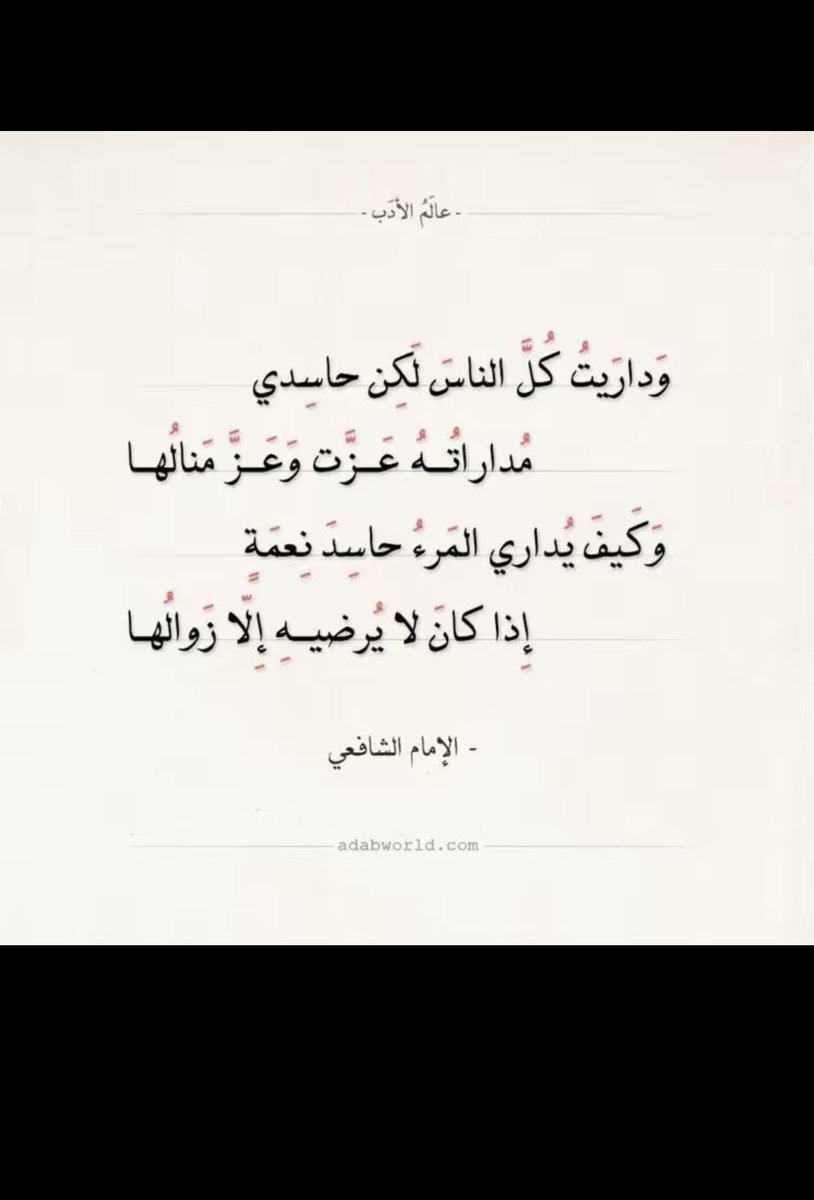 - عالَمُ الأدَب -
وَدارَيتُ كُلَّ الناسَ لَكِن حاسِدي
مُداراتُـهُ عَـزَّت وَعَـزَّ مَنالُهـا
وَكَيفَ يُداري المَرءُ حاسِدَ نِعمَةٍ
إِذا كانَ لا يُرضيـهِ إِلّا زَوالُهـا
- الإمام الشافعي
adabworld.com